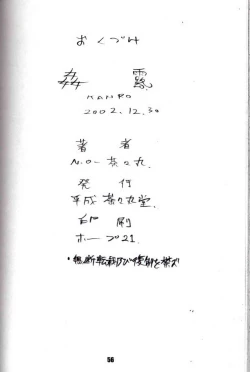 おくづけ
露
KANRO
2002.12.30
著者
N.O-茶々丸
発行
平成茶々丸堂.
印刷
ホープ21.
・無断転載及び複製を禁ズ
56